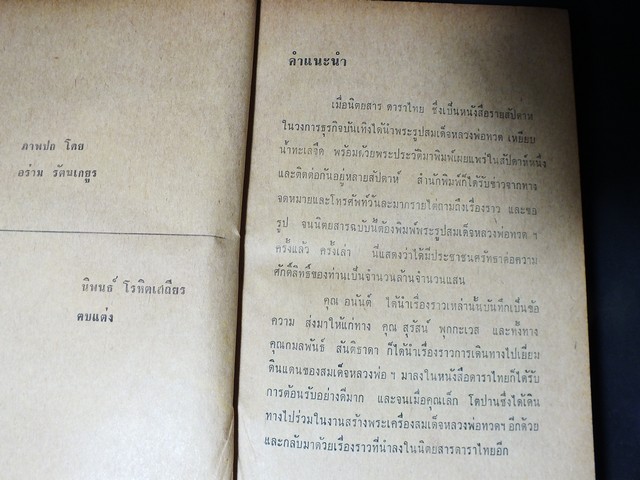 ภาพปก โดย
อร่าม รัตนเกยูร
นิพนธ์ โรหิตเสถียร
ตบแต่ง
คำแนะนำ
เมื่อนิตยสาร ดาราไทย ซึ่งเป็นหนังสือรายสัปดาห์
ในวงการธุรกิจบันเทิงได้นำพระรูปสมเด็จหลวงพ่อทวด เหยียบ
น้ำทะเลจืด พร้อมด้วยพระประวัติมาพิมพ์เผยแพร่ในสัปดาห์หนึ่ง
และติดต่อกันอยู่หลายสัปดาห์ สำนักพิมพ์ก็ได้รับข่าวจากทาง
จดหมายและโทรศัพท์วันละมากรายไต่ถามถึงเรื่องราว และขอ
รูป จนนิตยสารฉบับนี้ต้องพิมพ์พระรูปสมเด็จหลวงพ่อทวด ฯ
ครั้งแล้ว ครั้งเล่า นี่แสดงว่าได้มีประชาชนศรัทธาต่อความ
ศักดิ์สิทธิ์ของท่านเป็นจำนวนล้านจำนวนแสน
คุณ อนันต์ ได้นำเรื่องราวเหล่านั้นบันทึกเป็นข้อ
ความ ส่งมาให้แก่ทาง คุณ สุรัสน์ พุกกะเวส และทั้งทาง
คุณกมลพันธ์ สันติธาดา ก็ได้นำเรื่องราวการเดินทางไปเยี่ยม
ดินแดนของสมเด็จหลวงพ่อ ฯ มาลงในหนังสือดาราไทยก็ได้รับ
การต้อนรับอย่างดีมาก และจนเมื่อคุณเล็ก โตปานซึ่งได้เดิน
ทางไปร่วมในงานสร้างพระเครื่องสมเด็จหลวงพ่อทวดฯ อีกด้วย
และกลับมาด้วยเรื่องราวที่นำลงในนิตยสารดาราไทยอีก